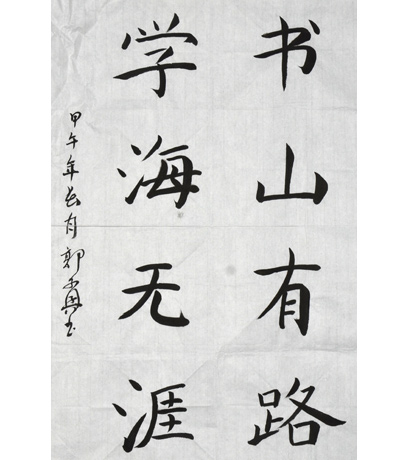 书山有路
学海无涯
甲午年春月郭书